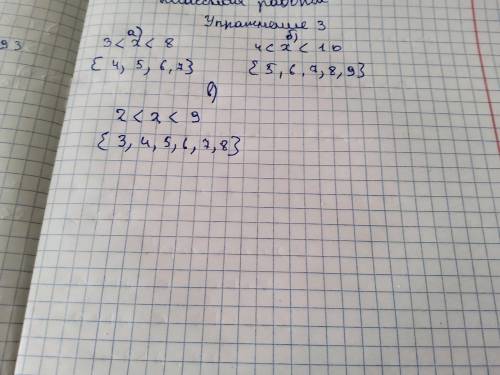 Классная работа
Упражнение 3
93
а)
3 < x < 8
{4, 5, 6, 7}
б)
4 < x < 10
{5, 6, 7, 8, 9}
в)
2 < x < 9
{3, 4, 5, 6, 7, 8}